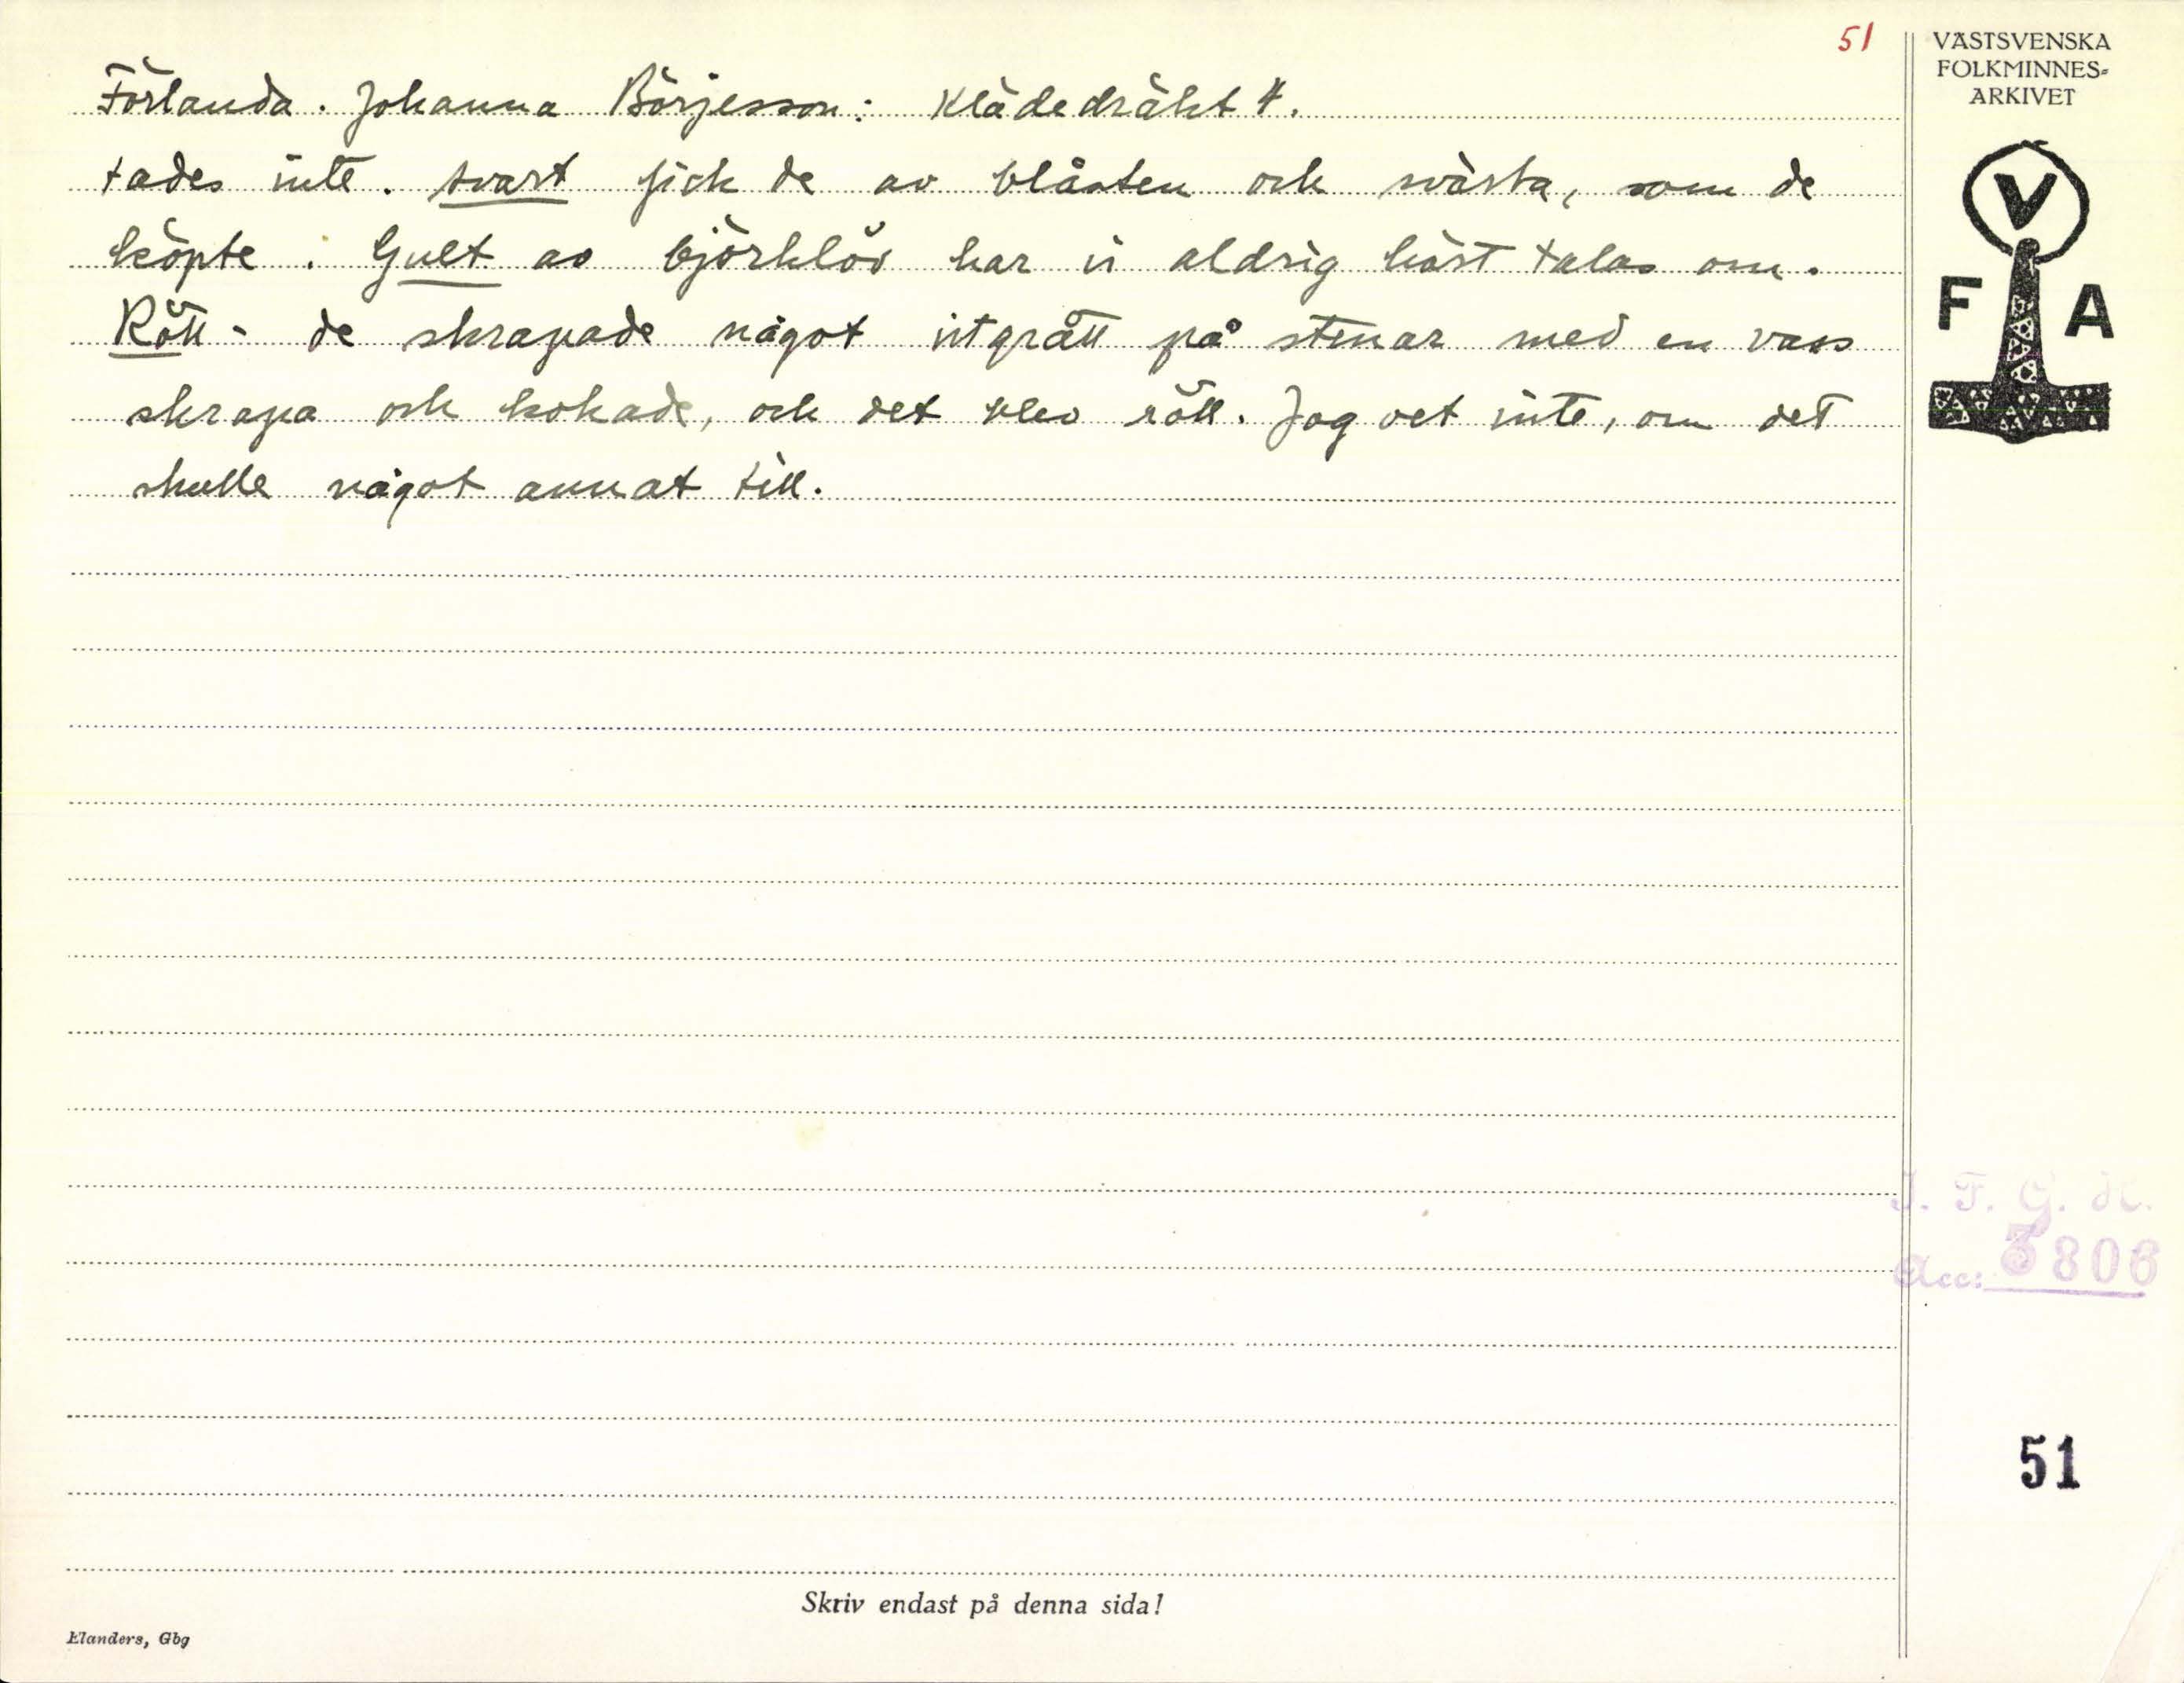 51
VÄSTSVENSKA
FOLKMINNES-
ARKIVET
Förlanda. Johanna Börjesson: Klädedräkt 4.
tades inte. Svart fick de av blåsten och svärta, som de
köpte. Gult av björklöv har vi aldrig hört talas om.
Rött - de skrapade något vitgrått på stenar med en vass
skrapa och kokade, och det blev rött. Jag vet inte, om det
skulle något annat till.
V
F A
I. F. G. H.
Acc: 3806
51
Skriv endast på denna sida!
Elanders, Gbg